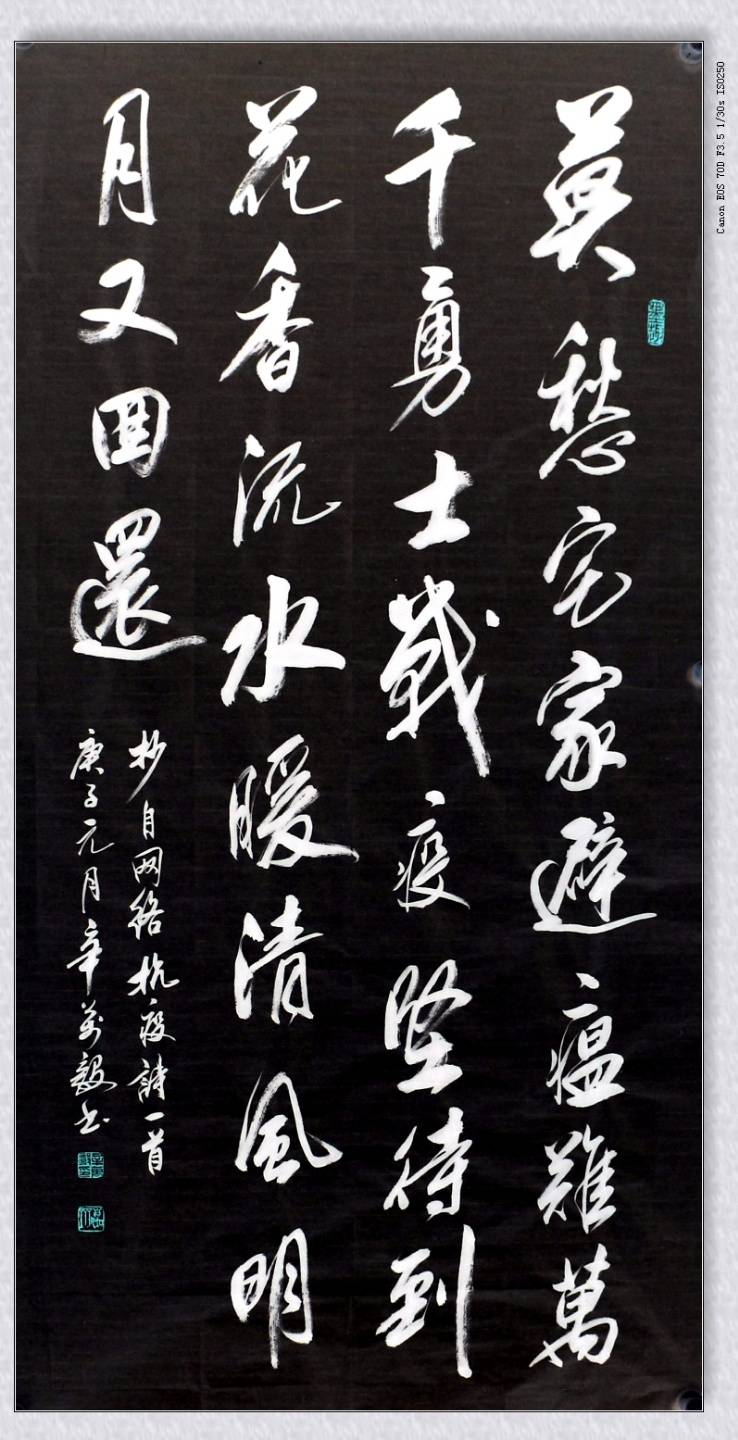 莫愁宅家避瘟難萬
千勇士戰疫堅待到
花香流水暖清風明
月又囬還
抄自网络抗疫詩一首
庚子元月辛萬毅书
Canon EOS 70D F3.5 1/30s ISO250